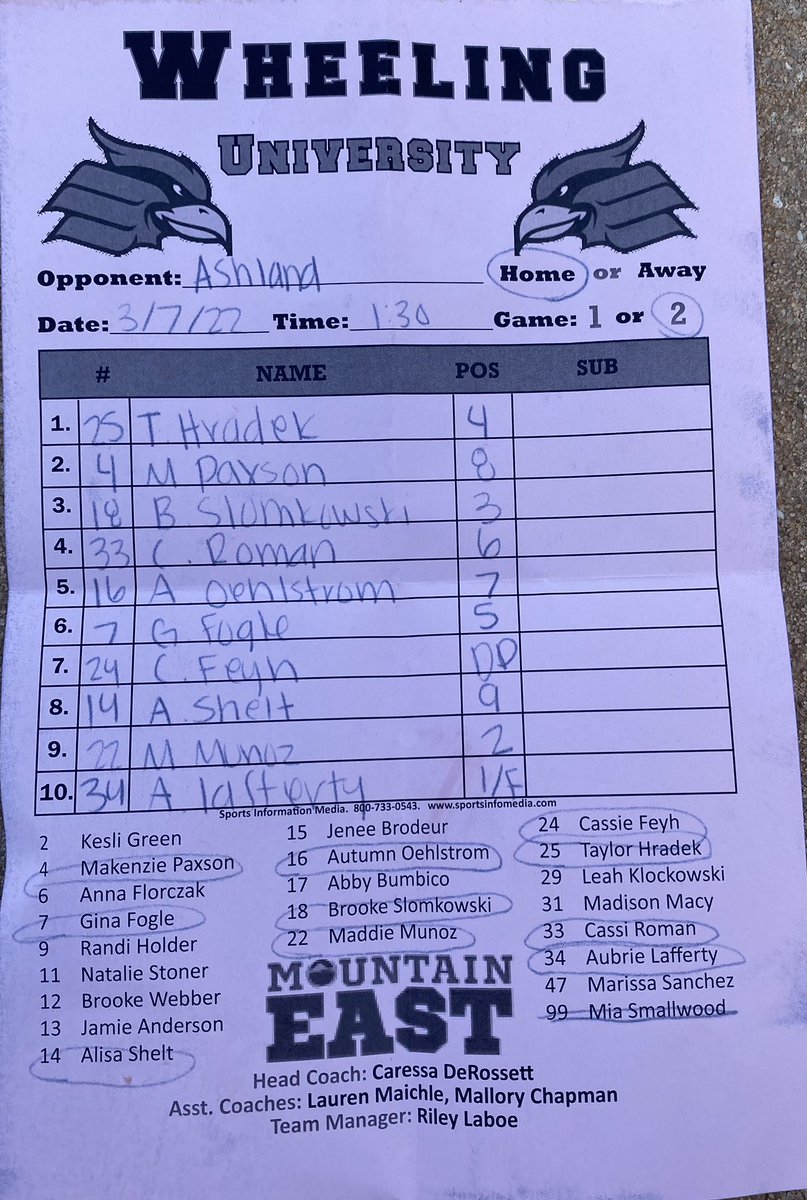 WHEELING
UNIVERSITY
Opponent: Ashland Home or Away
Date: 3/7/22 Time: 1:30 Game: 1 or 2
# NAME POS SUB
1. 25 T. Hradek 4
2. 4 M Paxson 8
3. 18 B Slomkowski 3
4. 33 C. Roman 6
5. 16 A Oehlstrom 7
6. 7 G. Fogle 5
7. 24 C. Feyh DP
8. 14 A. Shelt 9
9. 22 M Munoz 2
10. 34 A. Lafferty 1/F
Sports Information Media. 800-733-0543. www.sportsinfomedia.com
2 Kesli Green
4 Makenzie Paxson
6 Anna Florczak
7 Gina Fogle
9 Randi Holder
11 Natalie Stoner
12 Brooke Webber
13 Jamie Anderson
14 Alisa Shelt
15 Jenee Brodeur
16 Autumn Oehlstrom
17 Abby Bumbico
18 Brooke Slomkowski
22 Maddie Munoz
24 Cassie Feyh
25 Taylor Hradek
29 Leah Klockowski
31 Madison Macy
33 Cassi Roman
34 Aubrie Lafferty
47 Marissa Sanchez
99 Mia Smallwood
MOUNTAIN
EAST
Head Coach: Caressa DeRossett
Asst. Coaches: Lauren Maichle, Mallory Chapman
Team Manager: Riley Laboe